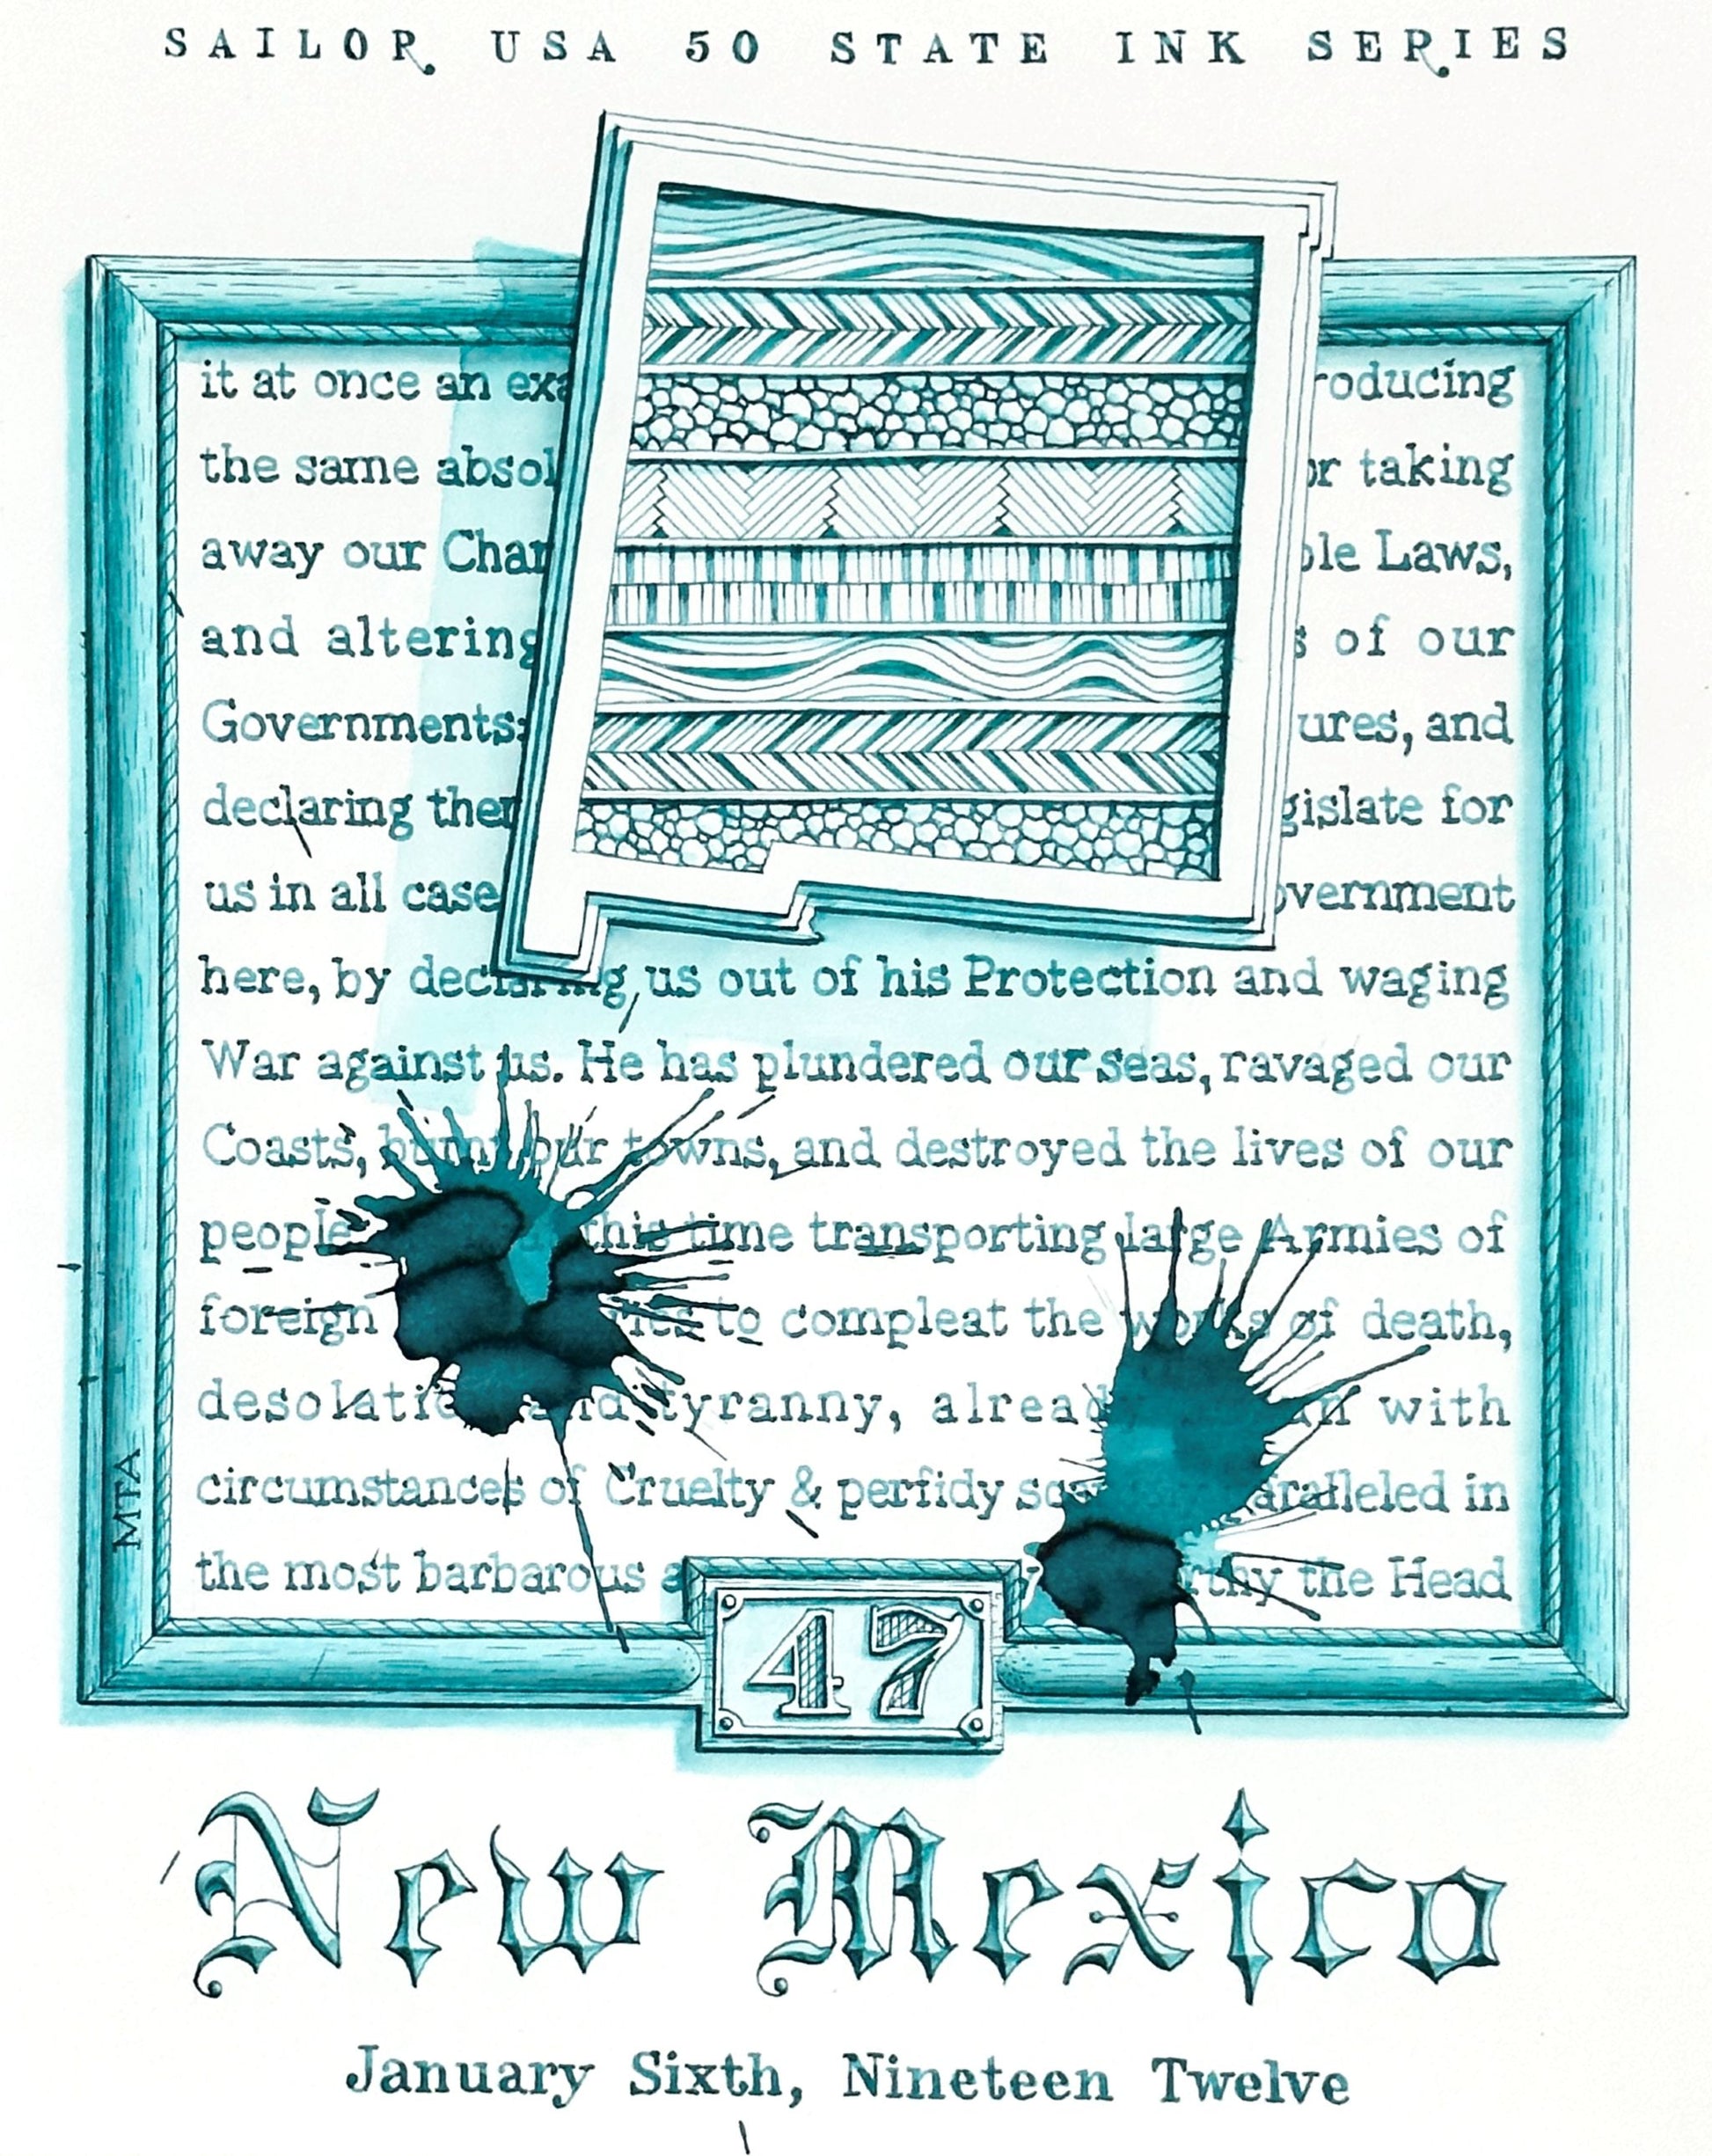 SAILOR USA 50 STATE INK SERIES
it at once an roducing
the same taking
away our Laws,
and altering of our
Governments: and
declaring for
us in all case
here, by declaring us out of his Protection and waging
War against us. He has plundered our seas, ravaged our
Coasts, burnt our towns, and destroyed the lives of our
people this time transporting large Armies of
foreign to compleat the works of death,
desolati and tyranny, with
circumstances of Cruelty & perfidy in
the most barbarous the Head
MTA
47
New Mexico
January Sixth, Nineteen Twelve